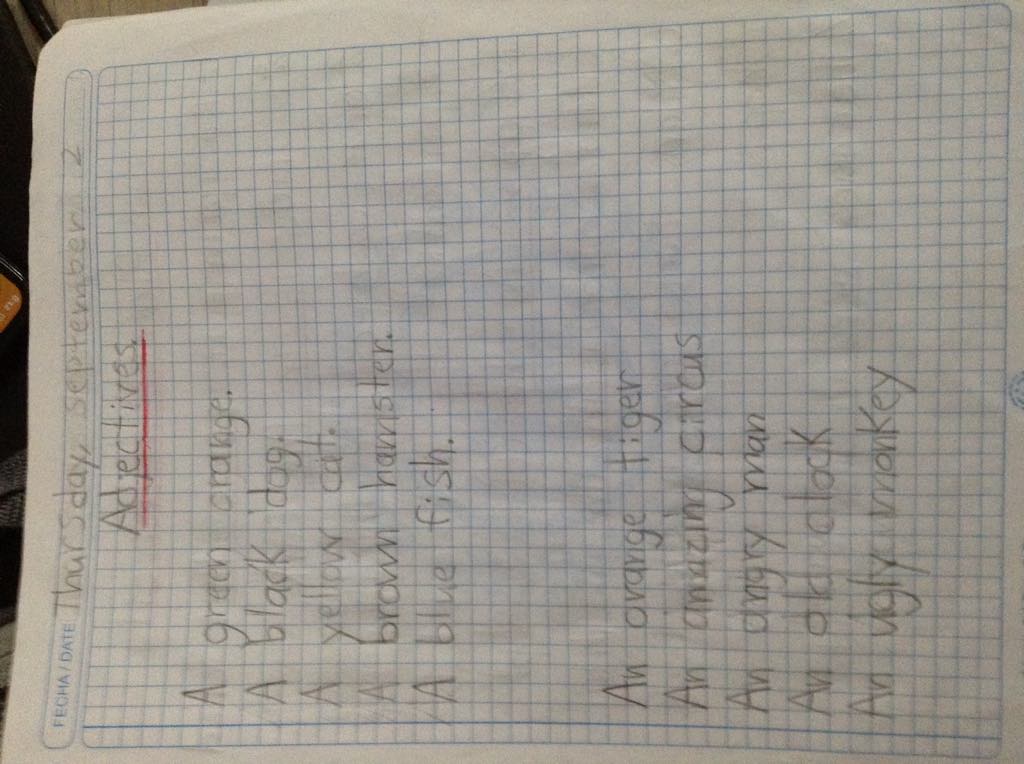 FECHA / DATE Thursday, september 2
Adjectives.
A green orange.
A black dog.
A yellow cat.
A brown hamster.
A blue fish.
An orange tiger
An amazing circus
An angry man
An old clock
An ugly monkey